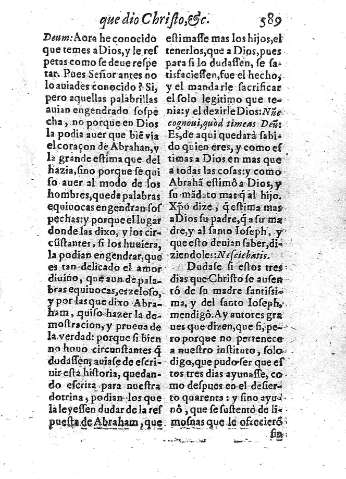 que dio Christo, &c. 589
Deum: Aora he conocido
que temes a Dios, y le res
petas como se deue respe
tar. Pues Señor antes no
lo auiades conocido? Si,
pero aquellas palabrillas
auian engendrado sospe
cha, no porque en Dios
la podia auer que biē via
el coraçon de Abrahan, y
la grande estima que del
hazia, sino porque se qui
so auer al modo de los
hombres, que de palabras
equiuocas engendran sos
pechas: y porque el lugar
donde las dixo, y los cir-
cunstantes, si los huuiera,
la podian engendrar, que
es tan delicado el amor
diuino, que aun de pala-
bras equiuocas, es zeloso,
y por las que dixo Abra-
ham, quiso hazer la de-
mostracion, y prueua de
la verdad: porque si bien
no houo circunstantes q̄
dudassen; auiase de escri-
uir esta historia, quedan-
do escrita para nuestra
dotrina, podian los que
la leyessen dudar de la res
puesta de Abraham, que
estimasse mas los hijos, el
tenerlos, que a Dios, pues
para si lo dudassen, se sa-
tisfaciessen, fue el hecho,
y el mandarle sacrificar
el solo legitimo que te-
nia: y el dezirle Dios: Nūc
cognoui, quòd timeas Deū:
Es, de aqui quedarà sabi-
do quien eres, y como es
timas a Dios en mas que
a todas las cosas: y como
Abrahā estimò a Dios, y
su mādato mas q̄ al hijo.
Xp̄o dize, q̄ estima mas
a Dios su padre, q̄ a su ma
dre, y al santo Ioseph, y
que esto deuian saber, di-
ziendoles: Nesciebatis.
Dudase si estos tres
dias que Christo se ausen
tò de su madre santissi-
ma, y del santo Ioseph,
mendigò. Ay autores gra
ues que dizen, que si, pe-
ro porque no pertenece
a nuestro instituto, solo
digo, que pudo ser que es
tos tres dias ayunasse, co
mo despues en el desier-
to quarenta: y sino ayu-
nò, que se sustentò de li-
mosnas que le ofrecierō
sin